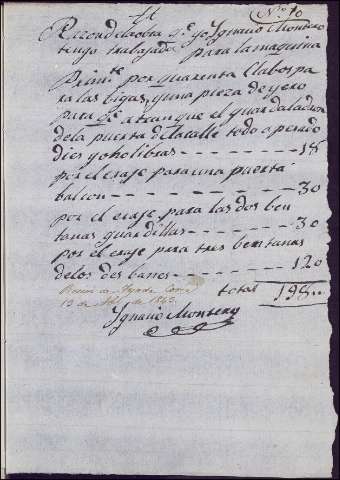 Nº 10
Razon delaobra qe yo Ignacio Montero
tengo trabajada para la maquina
Primte por quarenta Clabos pa
ra las bigas, y una pieza de yero
para qe atranque el guardaladron
dela puerta delacalle todo apesado
dies yocho libras - - - 18
por el eraje para una puerta
balcon - - - 30
por el eraje para las dos ben
tanas guardillas - - - 30
por el eraje para tres bentanas
delos des banes - - - 120
total 198
Ignacio Montero